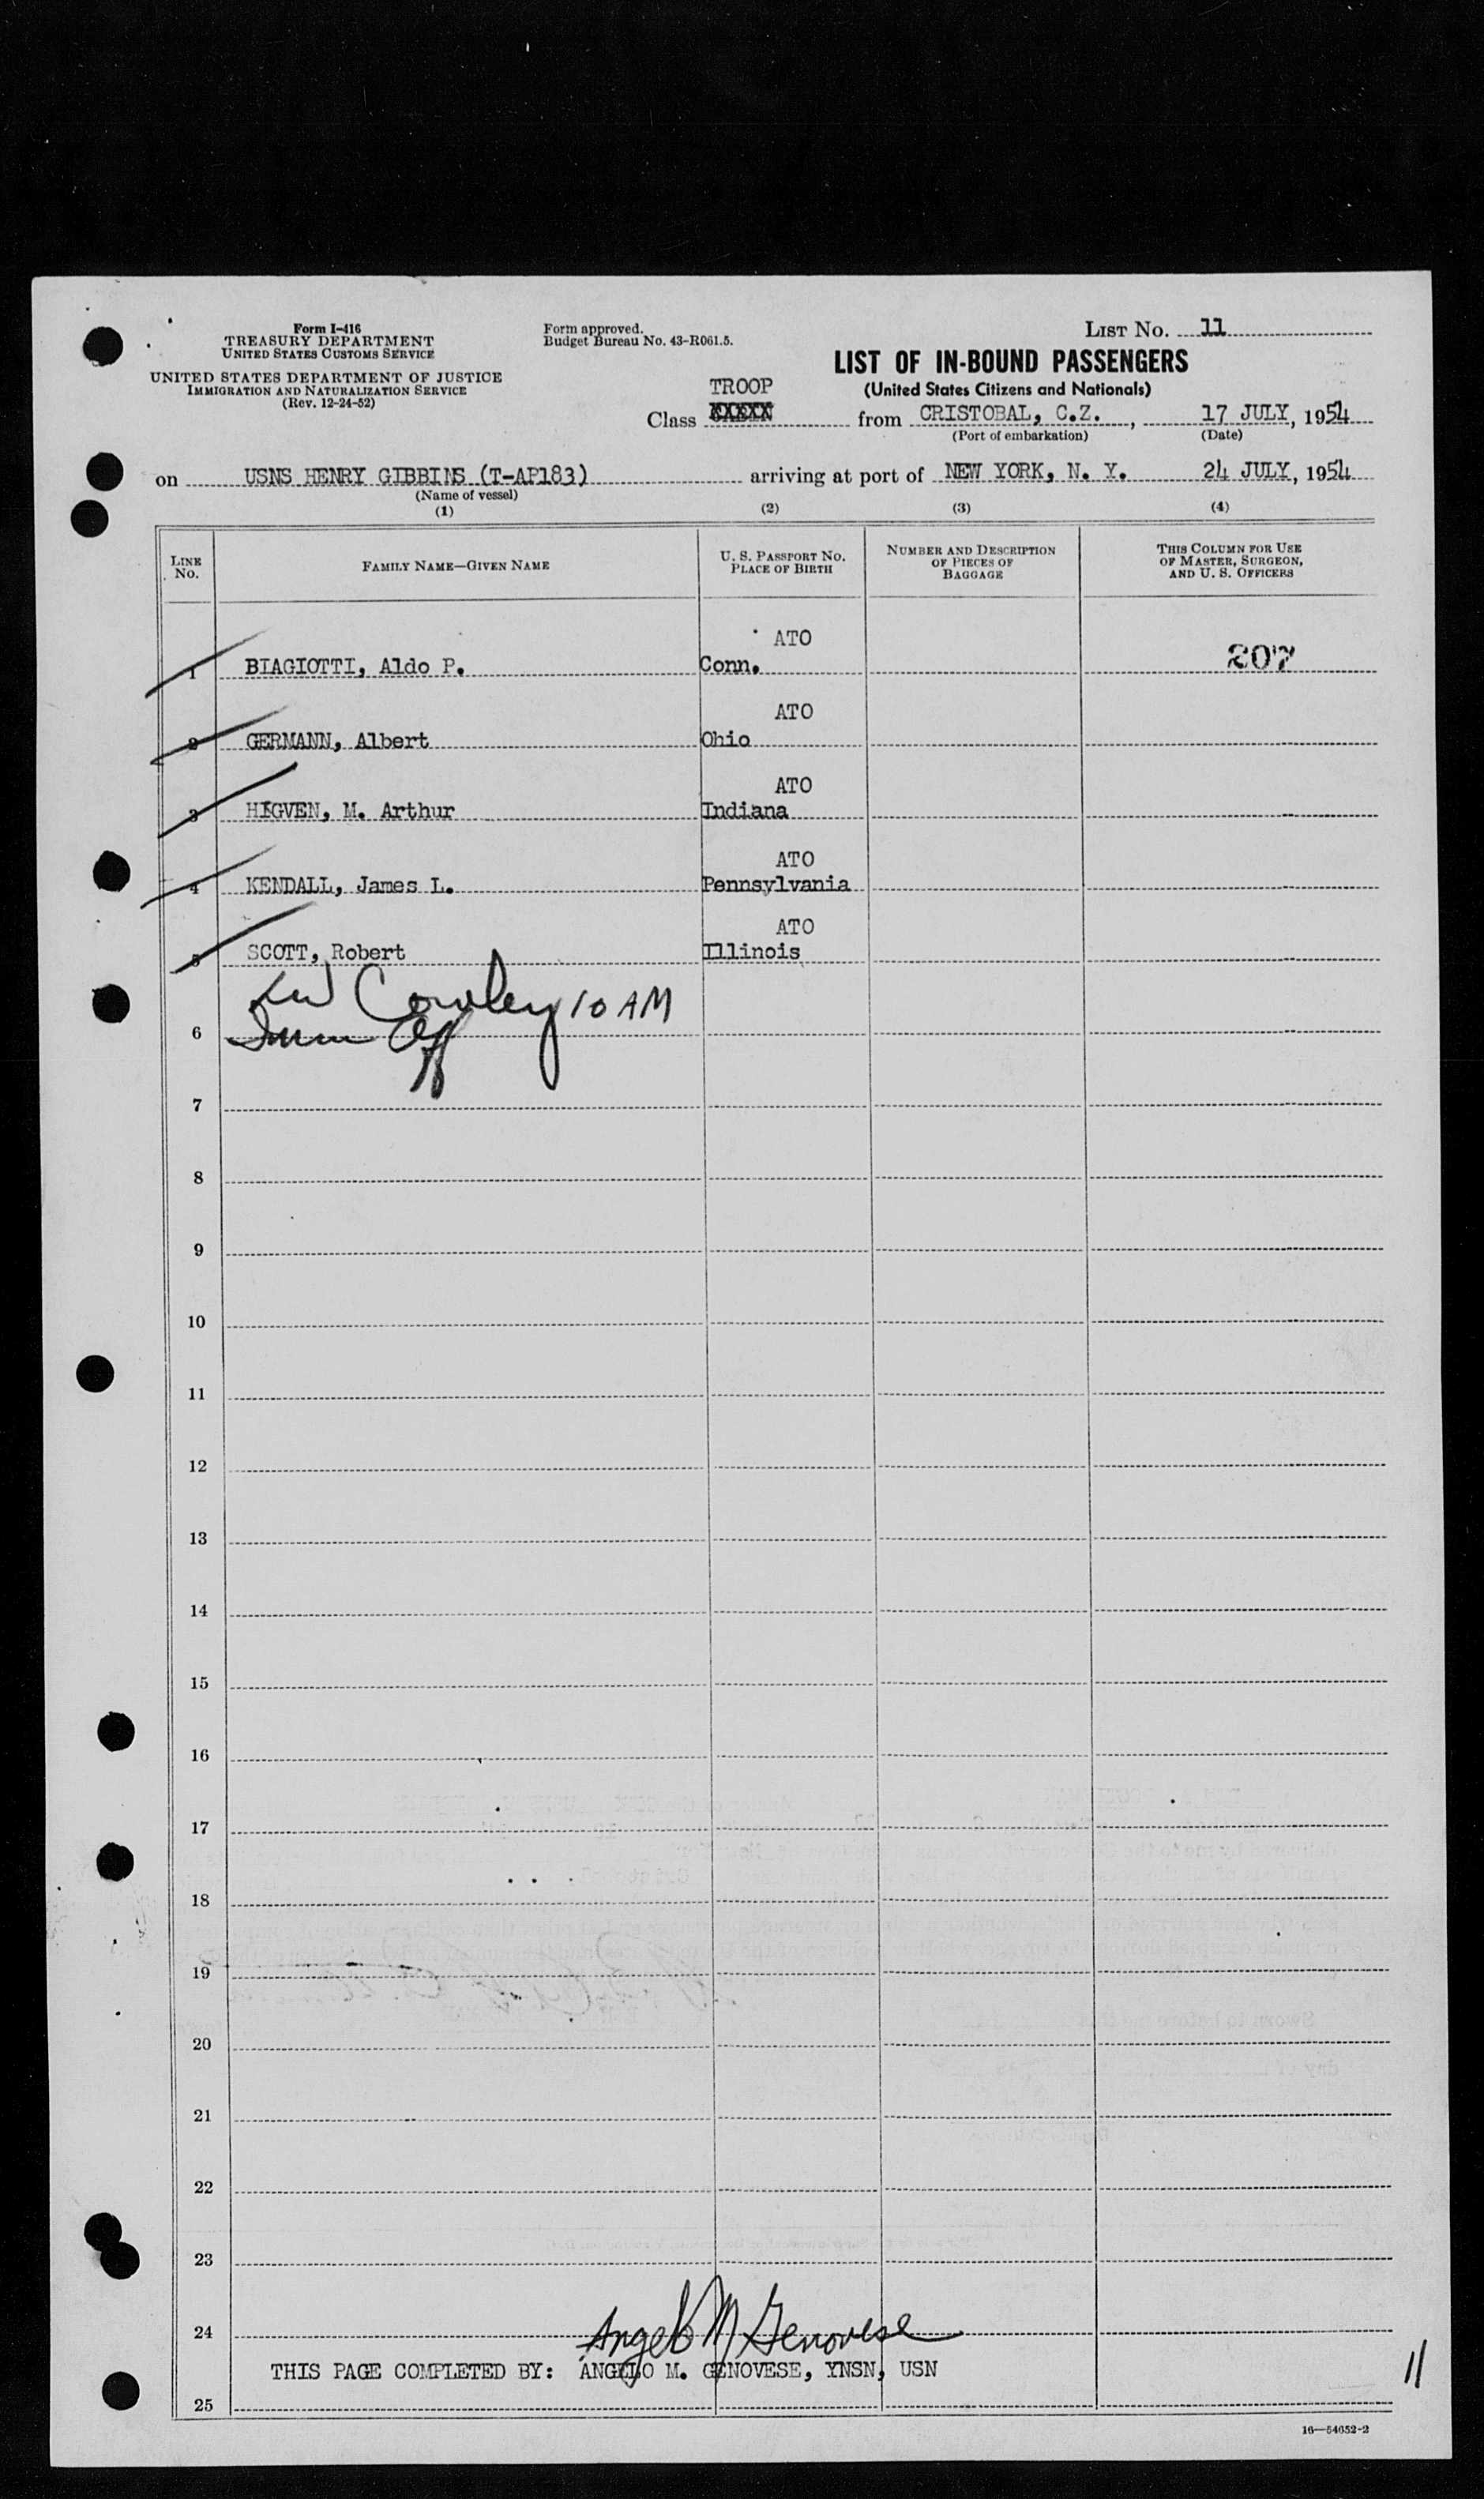 Form I-416
TREASURY DEPARTMENT
UNITED STATES CUSTOMS SERVICE
UNITED STATES DEPARTMENT OF JUSTICE
IMMIGRATION AND NATURALIZATION SERVICE
(Rev. 12-24-52)
Form approved.
Budget Bureau No. 43-R061.5.
LIST No. 11
LIST OF IN-BOUND PASSENGERS
(United States Citizens and Nationals)
TROOP
Class from CRISTOBAL, C.Z., 17 JULY, 1954
(Port of embarkation) (Date)
on USNS HENRY GIBBINS (T-AP183) arriving at port of NEW YORK, N. Y. 24 JULY, 1954
(Name of vessel)
(1) (2) (3) (4)
LINE No. FAMILY NAME—GIVEN NAME U. S. PASSPORT NO. PLACE OF BIRTH NUMBER AND DESCRIPTION OF PIECES OF BAGGAGE THIS COLUMN FOR USE OF MASTER, SURGEON, AND U. S. OFFICERS
ATO
1 BIAGIOTTI, Aldo P. Conn. 207
ATO
2 GERMANN, Albert Ohio
ATO
3 HIGVEN, M. Arthur Indiana
ATO
4 KENDALL, James L. Pennsylvania
ATO
5 SCOTT, Robert Illinois
Cowley 10 AM
6 Imm Off
7
8
9
10
11
12
13
14
15
16
17
18
19
20
21
22
23
24 Angelo M Genovese
THIS PAGE COMPLETED BY: ANGELO M. GENOVESE, YNSN, USN
11
25
16—54652-2